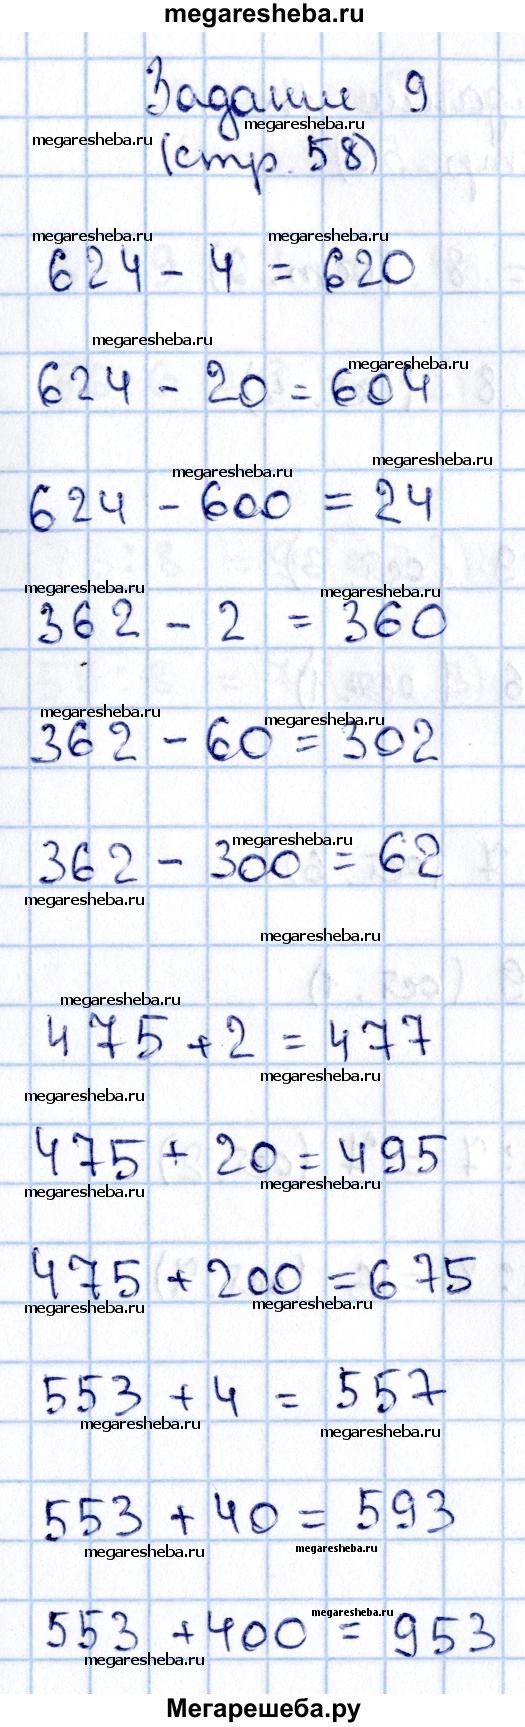 megaresheba.ru
Задание 9
megaresheba.ru
megaresheba.ru
(стр. 58)
megaresheba.ru megaresheba.ru
624 - 4 = 620
megaresheba.ru
megaresheba.ru
624 - 20 = 604
megaresheba.ru
megaresheba.ru
624 - 600 = 24
megaresheba.ru megaresheba.ru
362 - 2 = 360
megaresheba.ru
megaresheba.ru
362 - 60 = 302
megaresheba.ru
362 - 300 = 62
megaresheba.ru
megaresheba.ru
megaresheba.ru
475 + 2 = 477
megaresheba.ru
megaresheba.ru
475 + 20 = 495
megaresheba.ru megaresheba.ru
475 + 200 = 675
megaresheba.ru megaresheba.ru
553 + 4 = 557
megaresheba.ru megaresheba.ru
553 + 40 = 593
megaresheba.ru megaresheba.ru
megaresheba.ru
553 + 400 = 953
megaresheba.ru
Мегарешеба.ру